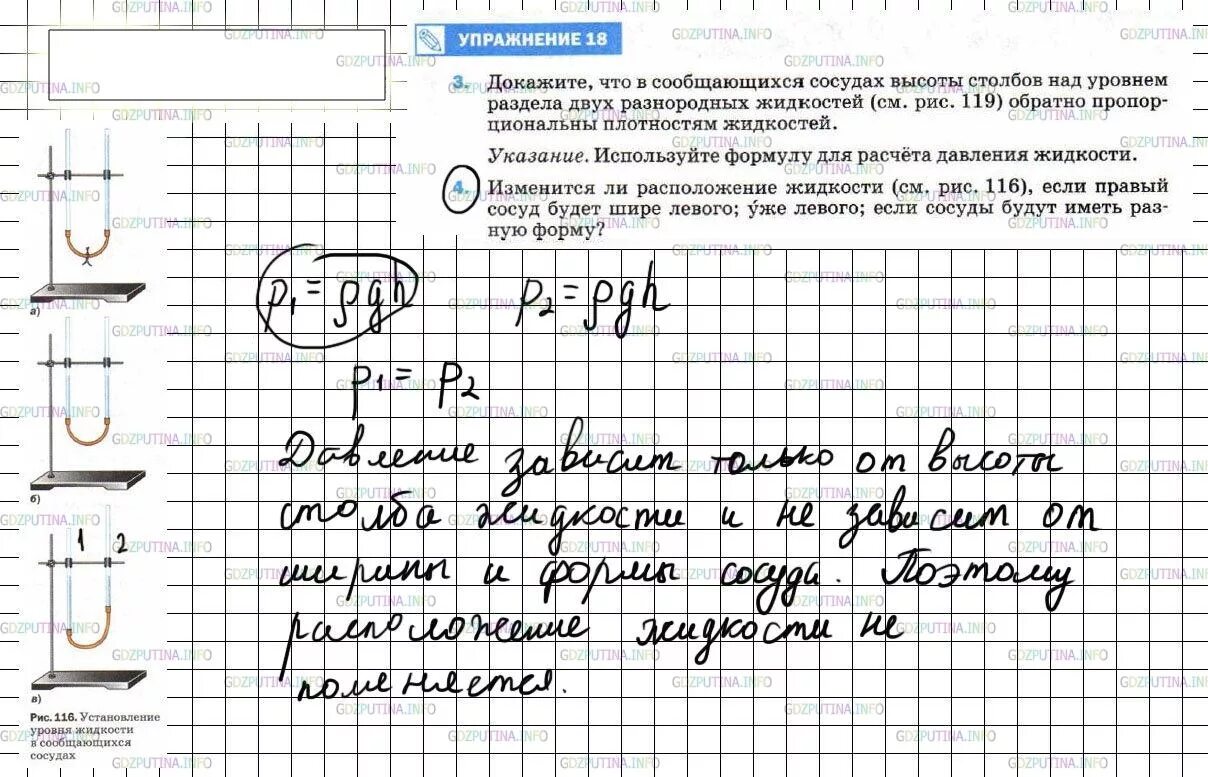 УПРАЖНЕНИЕ 18
3. Докажите, что в сообщающихся сосудах высоты столбов над уровнем
раздела двух разнородных жидкостей (см. рис. 119) обратно пропор-
циональны плотностям жидкостей.
Указание. Используйте формулу для расчёта давления жидкости.
4. Изменится ли расположение жидкости (см. рис. 116), если правый
сосуд будет шире левого; у́же левого; если сосуды будут иметь раз-
ную форму?
p₁ = ρgh p₂ = ρgh
p₁ = p₂
Давление зависит только от высоты
столба жидкости и не зависит от
ширины и формы сосуда. Поэтому
расположение жидкости не
поменяется.
а)
б)
1 2
в)
Рис. 116. Установление
уровня жидкости
в сообщающихся
сосудах
GDZPUTINA.INFO